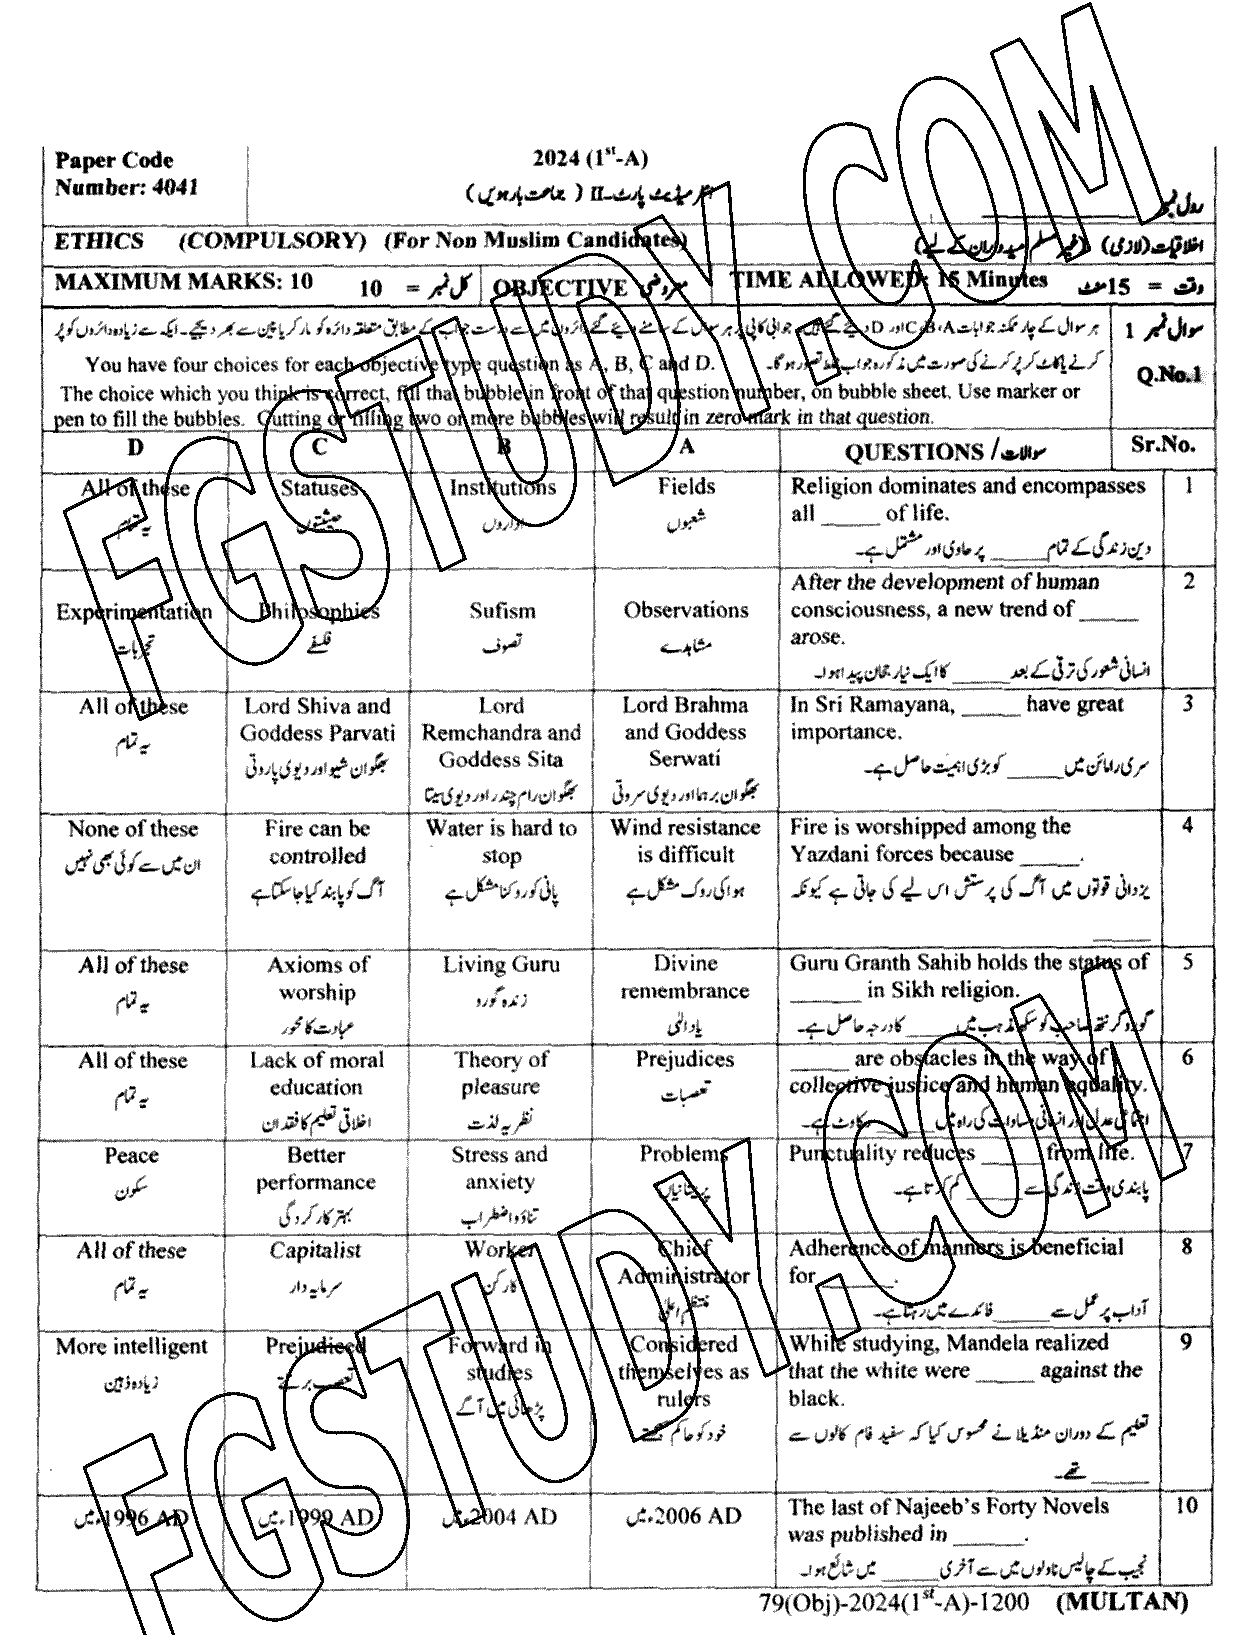 Paper Code
Number: 4041
2024 (1st-A)
انٹرمیڈیٹ پارٹ-II (جماعت بارہویں)
رول نمبر
ETHICS (COMPULSORY) (For Non Muslim Candidates)
اخلاقیات (لازمی) (غیر مسلم امیدواران کے لیے)
MAXIMUM MARKS: 10
10 = کل نمبر
OBJECTIVE معروضی
TIME ALLOWED: 15 Minutes
وقت = 15 منٹ
سوال نمبر 1
Q.No.1
ہر سوال کے چار ممکنہ جوابات A، B، C اور D دیئے گئے ہیں۔ جوابی کاپی پر ہر سوال کے سامنے دیئے گئے دائروں میں سے درست جواب کے مطابق متعلقہ دائرہ کو مارکر یا پین سے بھر دیجیے۔ ایک سے زیادہ دائروں کو پر
کرنے یا کاٹ کر پر کرنے کی صورت میں مذکورہ جواب غلط تصور ہو گا۔
You have four choices for each objective type question as A, B, C and D.
The choice which you think is correct, fill that bubble in front of that question number, on bubble sheet. Use marker or
pen to fill the bubbles. Cutting or filling two or more bubbles will result in zero mark in that question.
D C B A QUESTIONS / سوالات Sr.No.
All of these
یہ تمام
Statuses
حیثیتوں
Institutions
اداروں
Fields
شعبوں
Religion dominates and encompasses
all _____ of life.
دین زندگی کے تمام _____ پر حاوی اور مشتمل ہے۔
1
Experimentation
تجربات
Philosophies
فلسفے
Sufism
تصوف
Observations
مشاہدے
After the development of human
consciousness, a new trend of _____
arose.
انسانی شعور کی ترقی کے بعد _____ کا ایک نیا رجحان پیدا ہوا۔
2
All of these
یہ تمام
Lord Shiva and
Goddess Parvati
بھگوان شیو اور دیوی پاروتی
Lord
Remchandra and
Goddess Sita
بھگوان رام چندر اور دیوی سیتا
Lord Brahma
and Goddess
Serwati
بھگوان برہما اور دیوی سروتی
In Sri Ramayana, _____ have great
importance.
سری رامائن میں _____ کو بڑی اہمیت حاصل ہے۔
3
None of these
ان میں سے کوئی بھی نہیں
Fire can be
controlled
آگ کو پابند کیا جا سکتا ہے
Water is hard to
stop
پانی کو روکنا مشکل ہے
Wind resistance
is difficult
ہوا کی روک مشکل ہے
Fire is worshipped among the
Yazdani forces because _____.
یزدانی قوتوں میں آگ کی پرستش اس لیے کی جاتی ہے کیونکہ
_____
4
All of these
یہ تمام
Axioms of
worship
عبادت کا محور
Living Guru
زندہ گورو
Divine
remembrance
یاد الٰہی
Guru Granth Sahib holds the status of
______ in Sikh religion.
گورو گرنتھ صاحب کو سکھ مذہب میں _____ کا درجہ حاصل ہے۔
5
All of these
یہ تمام
Lack of moral
education
اخلاقی تعلیم کا فقدان
Theory of
pleasure
نظریہ لذت
Prejudices
تعصبات
_____ are obstacles in the way of
collective justice and human equality.
اجتماعی عدل اور انسانی مساوات کی راہ میں _____ رکاوٹ ہے۔
6
Peace
سکون
Better
performance
بہتر کارکردگی
Stress and
anxiety
تناؤ و اضطراب
Problems
پریشانیاں
Punctuality reduces _____ from life.
پابندی وقت زندگی سے _____ کم کرتا ہے۔
7
All of these
یہ تمام
Capitalist
سرمایہ دار
Worker
کارکن
Chief
Administrator
منتظم اعلیٰ
Adherence of manners is beneficial
for ______.
آداب پر عمل سے _____ فائدے میں رہتا ہے۔
8
More intelligent
زیادہ ذہین
Prejudiced
تعصب برتتے
Forward in
studies
پڑھائی میں آگے
Considered
themselves as
rulers
خود کو حاکم سمجھتے
While studying, Mandela realized
that the white were _____ against the
black.
تعلیم کے دوران منڈیلا نے محسوس کیا کہ سفید فام کالوں سے
_____ تھے۔
9
1996 AD،میں
1999 AD،میں
2004 AD،میں
2006 AD،میں
The last of Najeeb's Forty Novels
was published in ______.
نجیب کے چالیس ناولوں میں سے آخری _____ میں شائع ہوا۔
10
79(Obj)-2024(1st-A)-1200 (MULTAN)
FGSTUDY.COM
FGSTUDY.COM